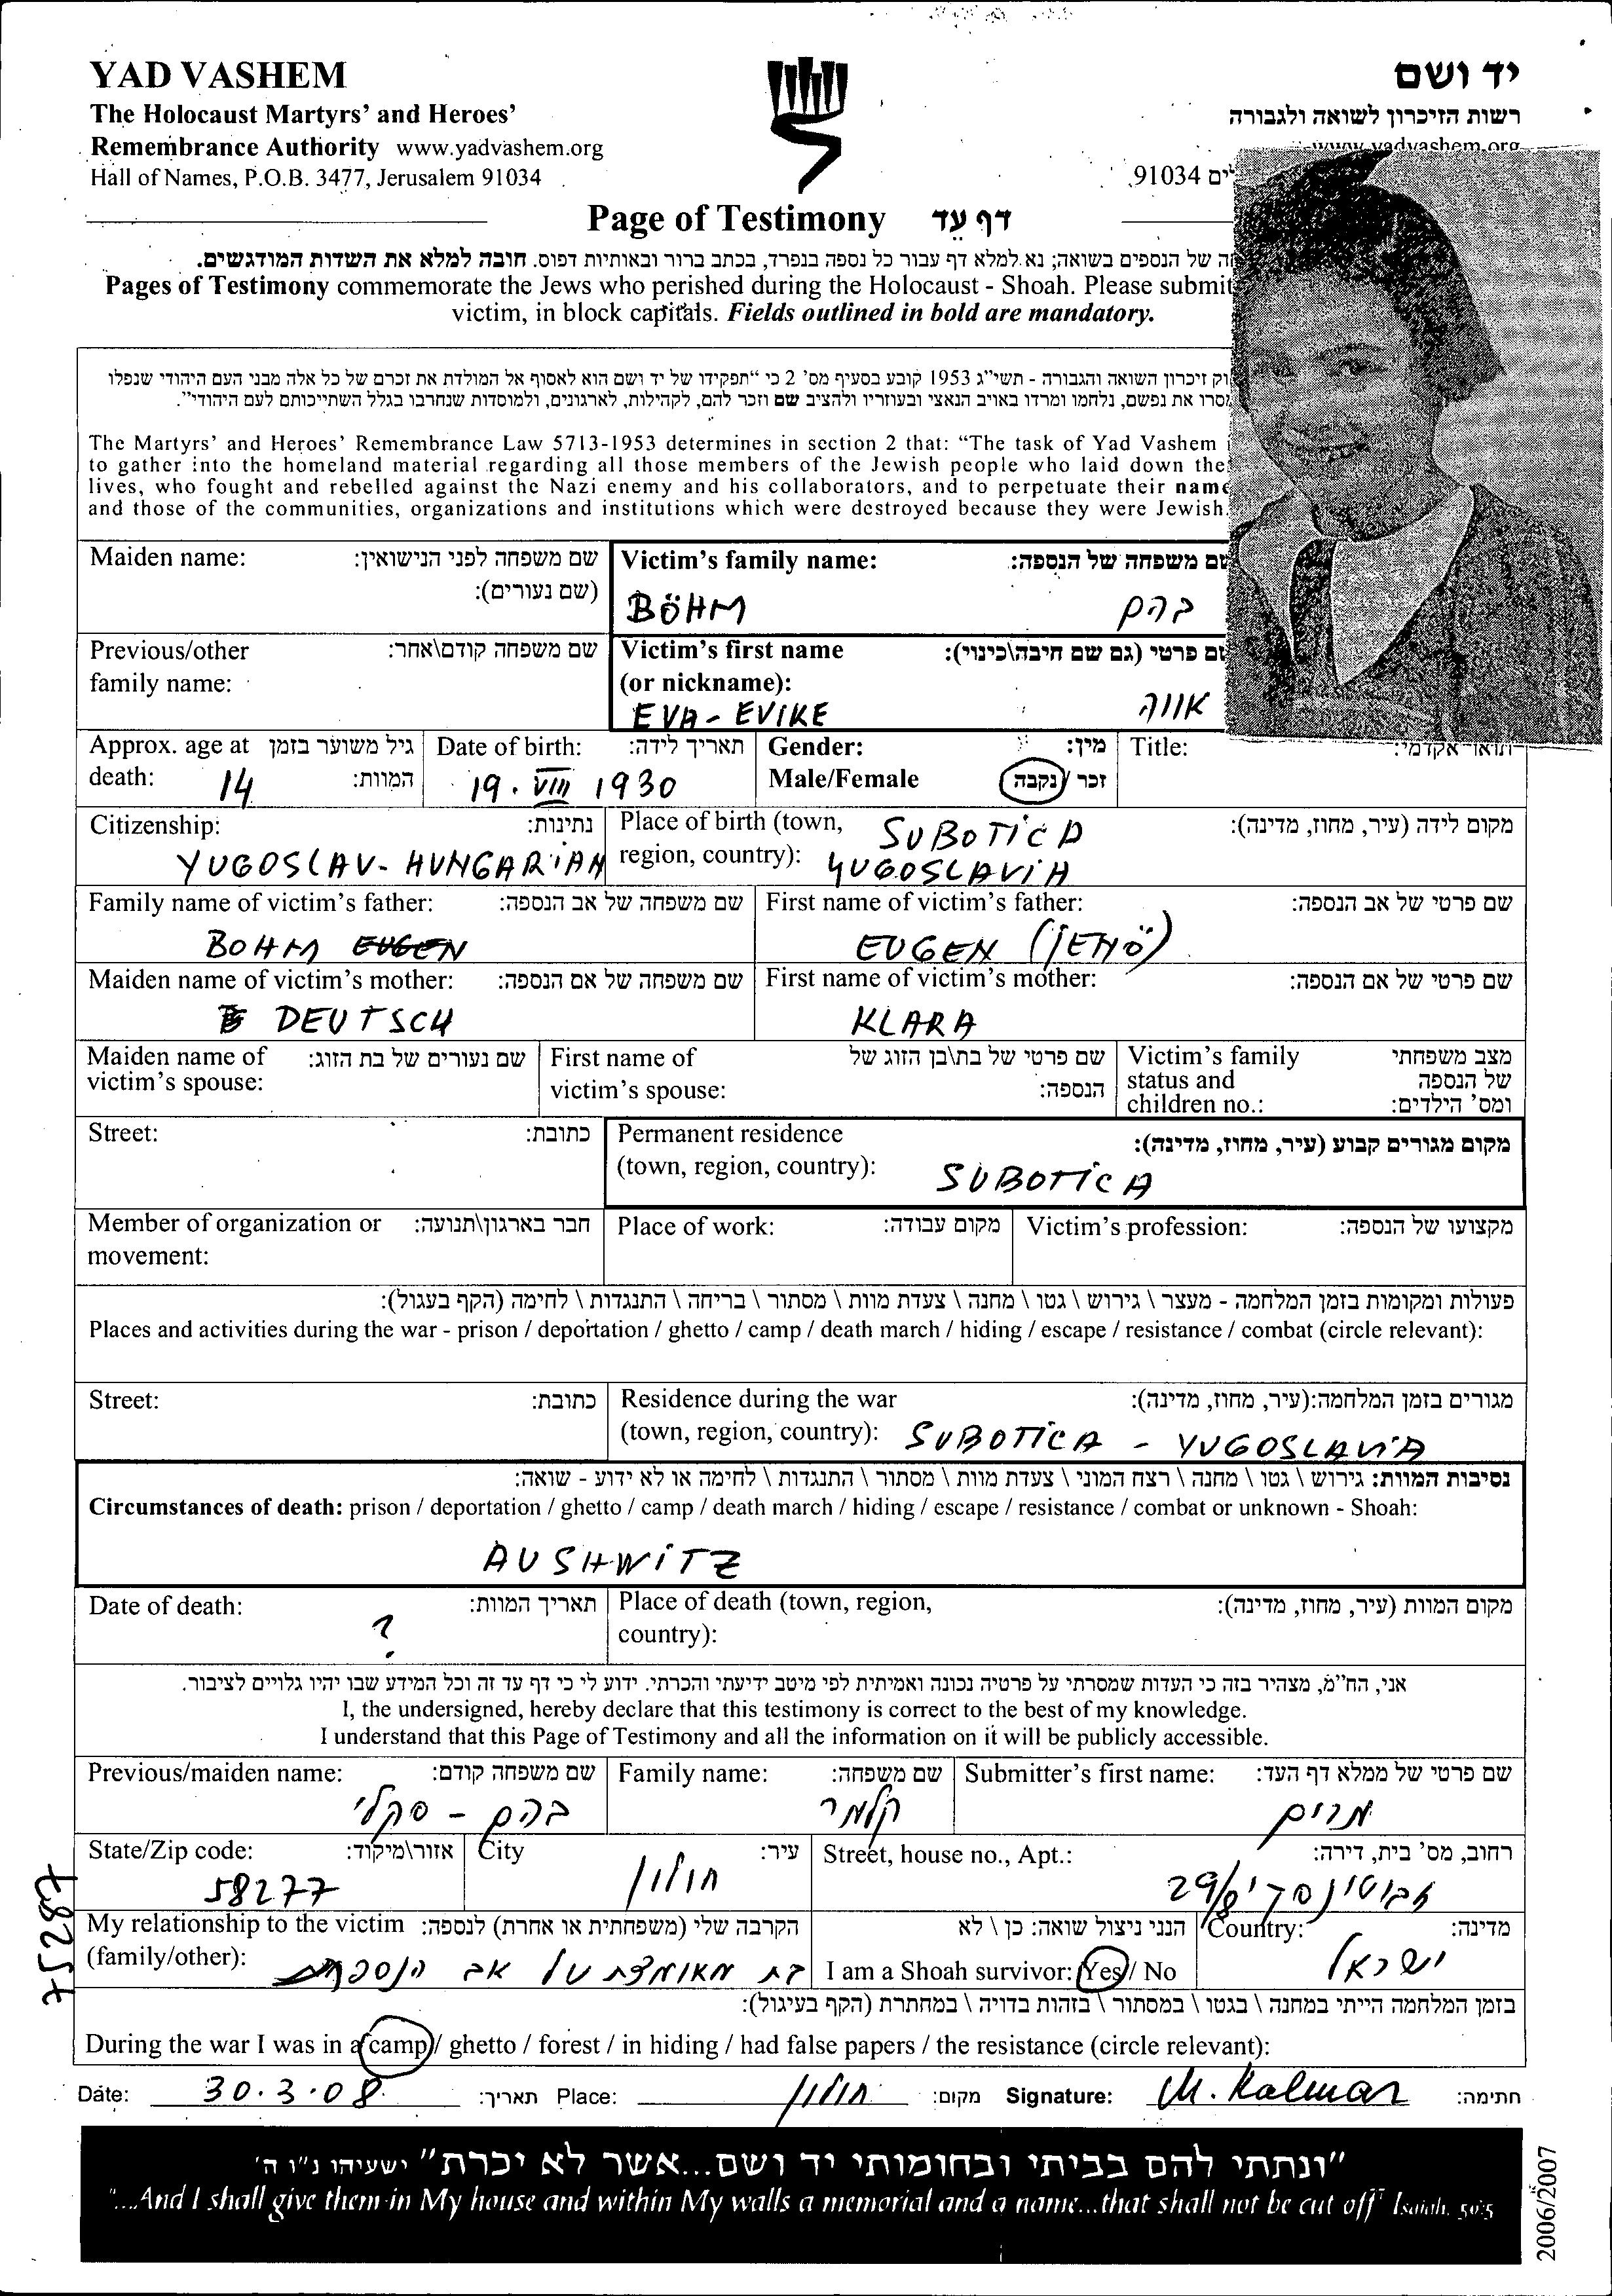 YAD VASHEM
The Holocaust Martyrs' and Heroes'
Remembrance Authority www.yadvashem.org
Hall of Names, P.O.B. 3477, Jerusalem 91034
יד ושם
רשות הזיכרון לשואה ולגבורה
www.yadvashem.org
91034
Page of Testimony דף עד
של הנספים בשואה; נא למלא דף עבור כל נספה בנפרד, בכתב ברור ובאותיות דפוס. חובה למלא את השדות המודגשים.
Pages of Testimony commemorate the Jews who perished during the Holocaust - Shoah. Please submit
victim, in block capitals. Fields outlined in bold are mandatory.
זיכרון השואה והגבורה - תשי"ג 1953 קובע בסעיף מס' 2 כי "תפקידו של יד ושם הוא לאסוף אל המולדת את זכרם של כל אלה מבני העם היהודי שנפלו
את נפשם, נלחמו ומרדו באויב הנאצי ובעוזריו ולהציב שם וזכר להם, לקהילות, לארגונים, ולמוסדות שנחרבו בגלל השתייכותם לעם היהודי".
The Martyrs' and Heroes' Remembrance Law 5713-1953 determines in section 2 that: "The task of Yad Vashem
to gather into the homeland material regarding all those members of the Jewish people who laid down
lives, who fought and rebelled against the Nazi enemy and his collaborators, and to perpetuate their
and those of the communities, organizations and institutions which were destroyed because they were Jewish
Maiden name: שם משפחה לפני הנישואין:
(שם נעורים):
Victim's family name: משפחה של הנספה:
BÖHM בהם
Previous/other שם משפחה קודם\אחר:
family name:
Victim's first name פרטי (גם שם חיבה\כינוי):
(or nickname):
EVA - EVIKE אווה
Approx. age at גיל משוער בזמן
death: 14 המוות:
Date of birth: תאריך לידה:
19. VIII 1930
Gender: מין:
Male/Female זכר / נקבה
Title: תואר אקדמי:
Citizenship: נתינות:
YUGOSLAV - HUNGARIAN
Place of birth (town, SUBOTICA מקום לידה (עיר, מחוז, מדינה):
region, country): YUGOSLAVIA
Family name of victim's father: שם משפחה של אב הנספה:
BOHM EUGEN
First name of victim's father: שם פרטי של אב הנספה:
EUGEN (JENÖ)
Maiden name of victim's mother: שם משפחה של אם הנספה:
DEUTSCH
First name of victim's mother: שם פרטי של אם הנספה:
KLARA
Maiden name of שם נעורים של בת הזוג:
victim's spouse:
First name of שם פרטי של בת\בן הזוג של
victim's spouse: הנספה:
Victim's family מצב משפחתי
status and של הנספה
children no.: ומס' הילדים:
Street: כתובת:
Permanent residence מקום מגורים קבוע (עיר, מחוז, מדינה):
(town, region, country): SUBOTICA
Member of organization or חבר בארגון\תנועה:
movement:
Place of work: מקום עבודה:
Victim's profession: מקצועו של הנספה:
פעולות ומקומות בזמן המלחמה - מעצר \ גירוש \ גטו \ מחנה \ צעדת מוות \ מסתור \ בריחה \ התנגדות \ לחימה (הקף בעגול):
Places and activities during the war - prison / deportation / ghetto / camp / death march / hiding / escape / resistance / combat (circle relevant):
Street: כתובת:
Residence during the war מגורים בזמן המלחמה:(עיר, מחוז, מדינה):
(town, region, country): SUBOTICA - YUGOSLAVIA
נסיבות המוות: גירוש \ גטו \ מחנה \ רצח המוני \ צעדת מוות \ מסתור \ התנגדות \ לחימה או לא ידוע - שואה:
Circumstances of death: prison / deportation / ghetto / camp / death march / hiding / escape / resistance / combat or unknown - Shoah:
AUSHWITZ
Date of death: תאריך המוות:
?
Place of death (town, region, מקום המוות (עיר, מחוז, מדינה):
country):
אני, הח"מ, מצהיר בזה כי העדות שמסרתי על פרטיה נכונה ואמיתית לפי מיטב ידיעתי והכרתי. ידוע לי כי דף עד זה וכל המידע שבו יהיו גלויים לציבור.
I, the undersigned, hereby declare that this testimony is correct to the best of my knowledge.
I understand that this Page of Testimony and all the information on it will be publicly accessible.
Previous/maiden name: שם משפחה קודם:
בהם - סקלי
Family name: שם משפחה:
קלמר
Submitter's first name: שם פרטי של ממלא דף העד:
מרים
State/Zip code: אזור\מיקוד:
58277
City עיר:
חולון
Street, house no., Apt.: רחוב, מס' בית, דירה:
ז'בוטינסקי 29/8
My relationship to the victim הקרבה שלי (משפחתית או אחרת) לנספה:
(family/other): בת מאומצת של אב הנספה
הנני ניצול שואה: כן \ לא
I am a Shoah survivor: Yes / No
Country: מדינה:
ישראל
בזמן המלחמה הייתי במחנה \ בגטו \ במסתור \ בזהות בדויה \ במחתרת (הקף בעיגול):
During the war I was in a camp / ghetto / forest / in hiding / had false papers / the resistance (circle relevant):
Date: 30.3.08 תאריך: Place: חולון מקום: Signature: M. Kalmar חתימה:
"ונתתי להם בביתי ובחומותי יד ושם...אשר לא יכרת" ישעיהו נ"ו ה'
"...And I shall give them in My house and within My walls a memorial and a name...that shall not be cut off" Isaiah, 56:5
2006/2007